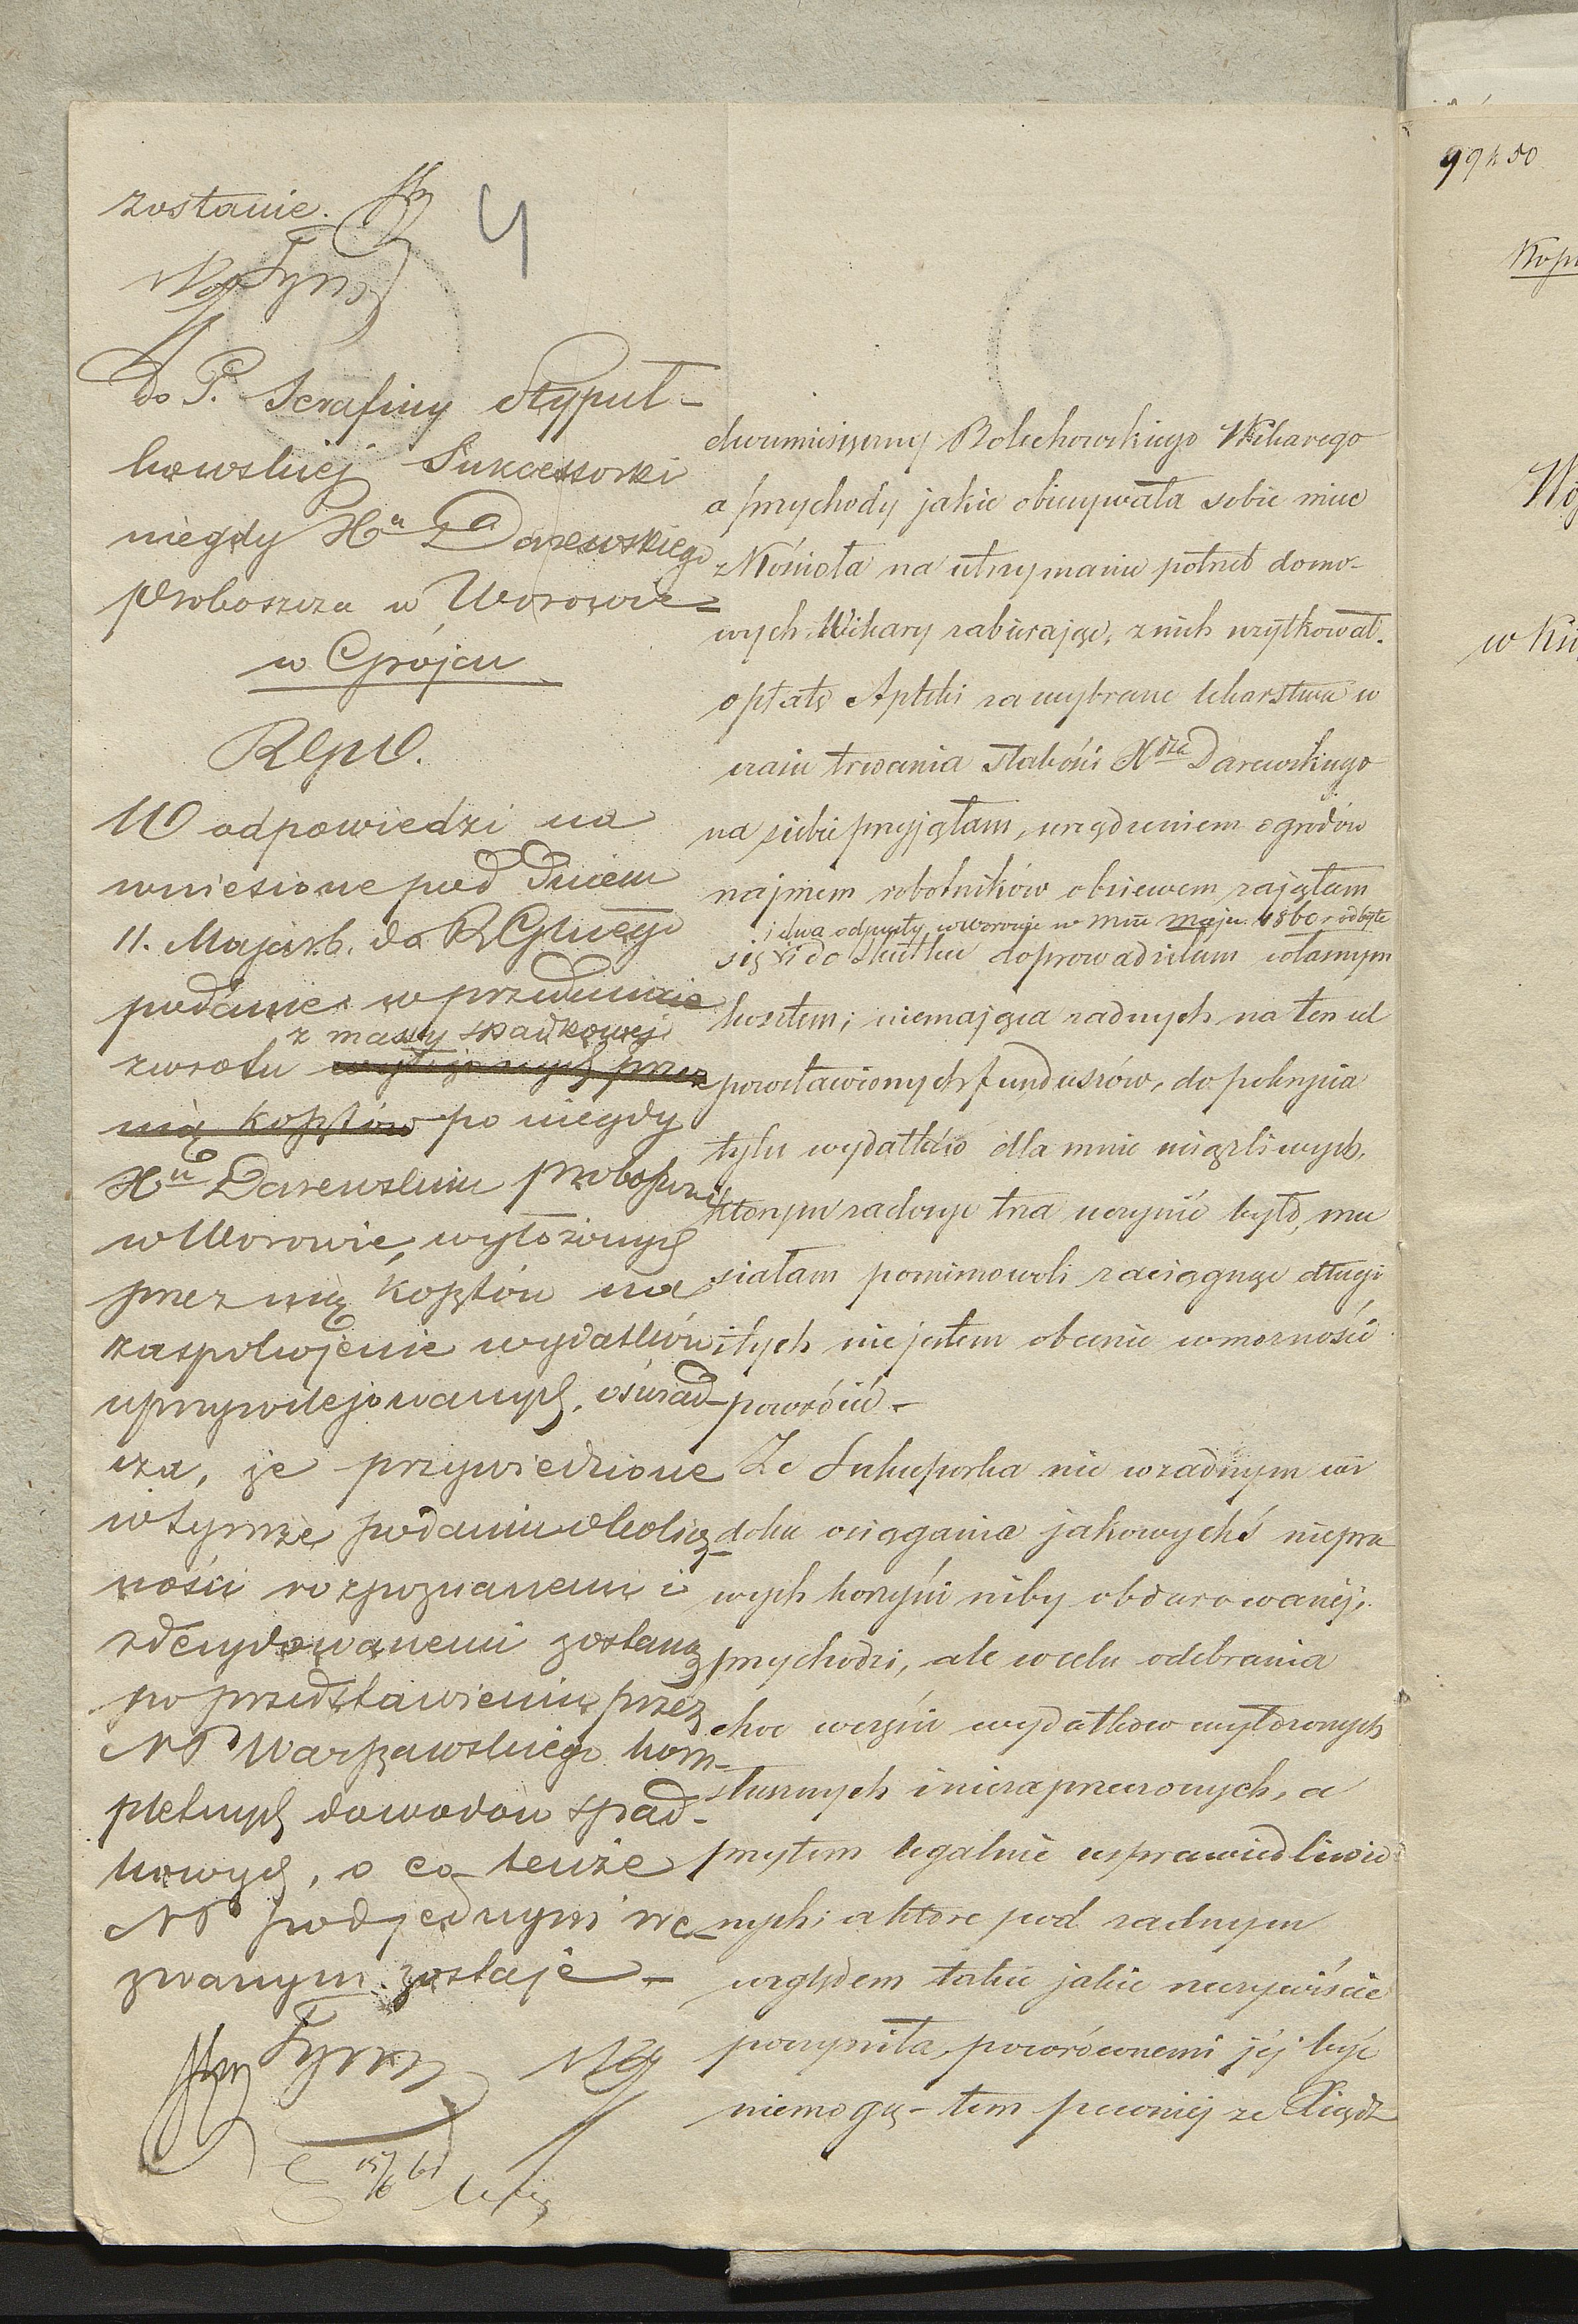 zostanie.
4
Do P. Serafiny Stypuł-
kowskiej Sukcessorki
niegdy Xa Darewskiego
Proboszcza w Worowie
w Grójcu
RGPW.
W odpowiedzi na
wniesione pod dniem
11. Maja r.b. do RGlnego
podanie w przedmiocie
z massy spadkowej
zwrotu wyłożonych przez
nią kosztów po niegdy
Xu Darewskim proboszczu
w Worowie, wyłożonych
przez nią kosztów na
zaspokojenie wydatków
uprzywilejowanych, oświad-
cza, że przywiedzione
w tymże podaniu okolicz-
ności rozpoznanemi i
zdecydowanemi zostaną
po przedstawieniu przez
NP Warszawskiego kom-
pletnych dowodów spad-
kowych, o co tenże
NP pod jednym we-
zwanym zostaje
15/6 61
dwumiesięczny Bolechowskiego Wikarego
a przychody jakie obiecywała sobie miec
z Kościoła na utrzymanie potrzeb domo-
wych Wikary zabierając, z nich użytkował.
opłatę Apteki za wybrane lekarstwa w
czasie trwania słabości Xdza Darewskiego
na siebie przyjęłam, urządzeniem ogrodów
najmem robotników obsiewem zajęłam
i dwa odpusty w Worowie w mcu Maju 1860 r odbyte
się i do skutku doprowadziłam własnym
kosztem; niemająca żadnych na ten cel
pozostawionych funduszów, do pokrycia
tylu wydatków dla mnie uciążliwych,
którym zadosyć trza uczynić było, mu
siałam pomimowoli zaciągnąć długi
i tych nie jestem obecnie w możności
powrócić.
Że Sukcessorka nie w żadnym wi
doku osiągania jakowychś niepra
wych korzyści niby obdarowanej,
przychodzi, ale w celu odebrania
choc części wydatków wyłożonych
słusznych i niezaprzeczonych, a
przytem legalnie usprawiedliwio
nych; a które pod żadnym
względem takie jakie rzeczywiście
poczyniła, powróconemi jéj być
niemogą – tem pewniej ze Xiądz
99450
Kop
w Ki